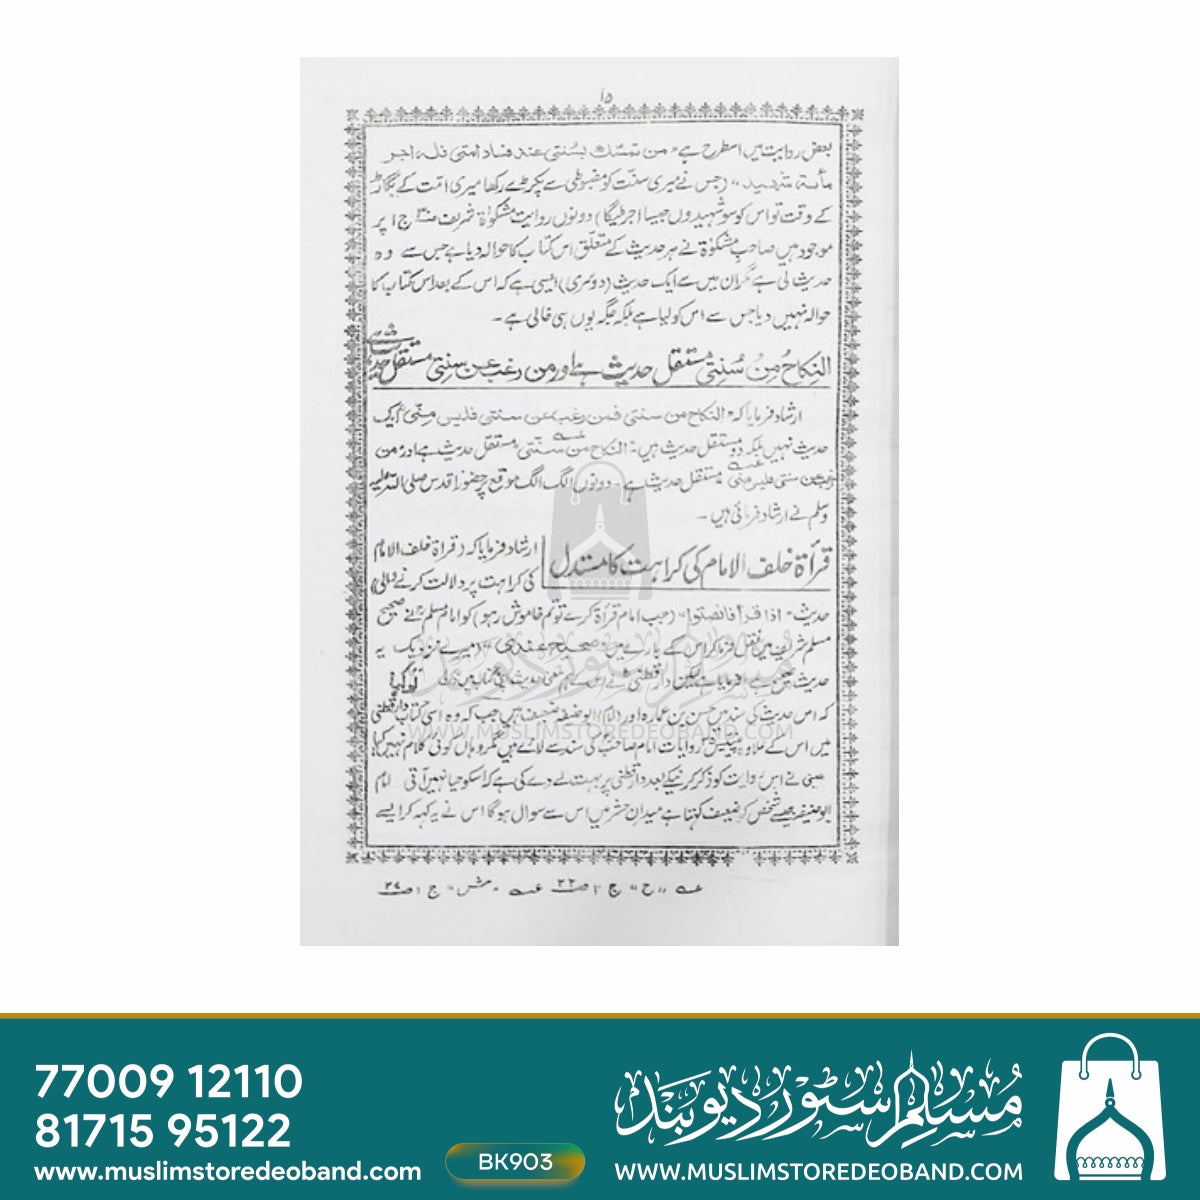 ۱۵
بعض روایت میں اسطرح ہے "من تمسک بسنتی عند فساد امتی فلہ اجر
مأئۃ شھید" (جس نے میری سنّت کو مضبوطی سے پکڑے رکھا میری امّت کے بگاڑ
کے وقت تو اس کو سو شہیدوں جیسا اجر ملیگا) دونوں روایت مشکوٰۃ شریف ص۳۰ ج۱ پر
موجود ہیں صاحب مشکوٰۃ نے ہر حدیث کے متعلّق اس کتاب کا حوالہ دیا ہے جس سے وہ
حدیث لی ہے مگر ان میں سے ایک حدیث (دوسری) ایسی ہے کہ اس کے بعد اس کتاب کا
حوالہ نہیں دیا جس سے اس کو لیا ہے بلکہ جگہ یوں ہی خالی ہے۔
النکاحُ مِنْ سُنتِی مستقل حدیث ہے اور من رغب عن سنتی مستقل حدیث ہے
ارشاد فرمایا کہ "النکاح من سنتی فمن رغب عن سنتی فلیس منّی" ایک
حدیث نہیں بلکہ دو مستقل حدیث ہیں۔ "النکاح من سنتی" مستقل حدیث ہے اور "من
رغب عن سنتی فلیس منی" مستقل حدیث ہے۔ دونوں الگ الگ موقع پر حضور اقدس صلی اللہ علیہ
وسلم نے ارشاد فرمائی ہیں۔
قرأۃ خلف الامام کی کراہت کا مستدل
ارشاد فرمایا کہ (قرأۃ خلف الامام
کی کراہت پر دلالت کرنے والی)
حدیث "اذا قرأ فانصتوا" (جب امام قرأۃ کرے تو تم خاموش رہو) کو امام مسلم نے صحیح
مسلم شریف میں نقل فرما کر اس کے بارے میں "ھو صحیح عندی" (میرے نزدیک یہ
حدیث صحیح ہے) فرمایا ہے لیکن دار قطنی نے اس کے ہم معنی حدیث اپنی کتاب میں تو کہا
کہ اس حدیث کی سند میں حسن بن عمارہ اور (امام) ابو حنیفہ ضعیف ہیں جب کہ وہ اسی کتاب دار قطنی
میں اس کے علاوہ روایات امام صاحب کی سند سے لائے ہیں مگر وہاں کوئی کلام نہیں کیا،
عینی نے اس روایت کو ذکر کرنیکے بعد دار قطنی پر بہت لے دے کی ہے کہ اسکو حیا نہیں آتی امام
ابو حنیفہ جیسے شخص کو ضعیف کہتا ہے میدانِ حشر میں اس سے سوال ہوگا اس نے یہ کہہ کر ایسے
عہ "ح" ج۱ ص۳۲ عہ "مش" ج۱ ص۲۷
WWW.MUSLIMSTOREDEOBAND.COM
77009 12110
81715 95122
www.muslimstoredeoband.com
BK903
مُسلِم سٹور دیوبند
WWW.MUSLIMSTOREDEOBAND.COM